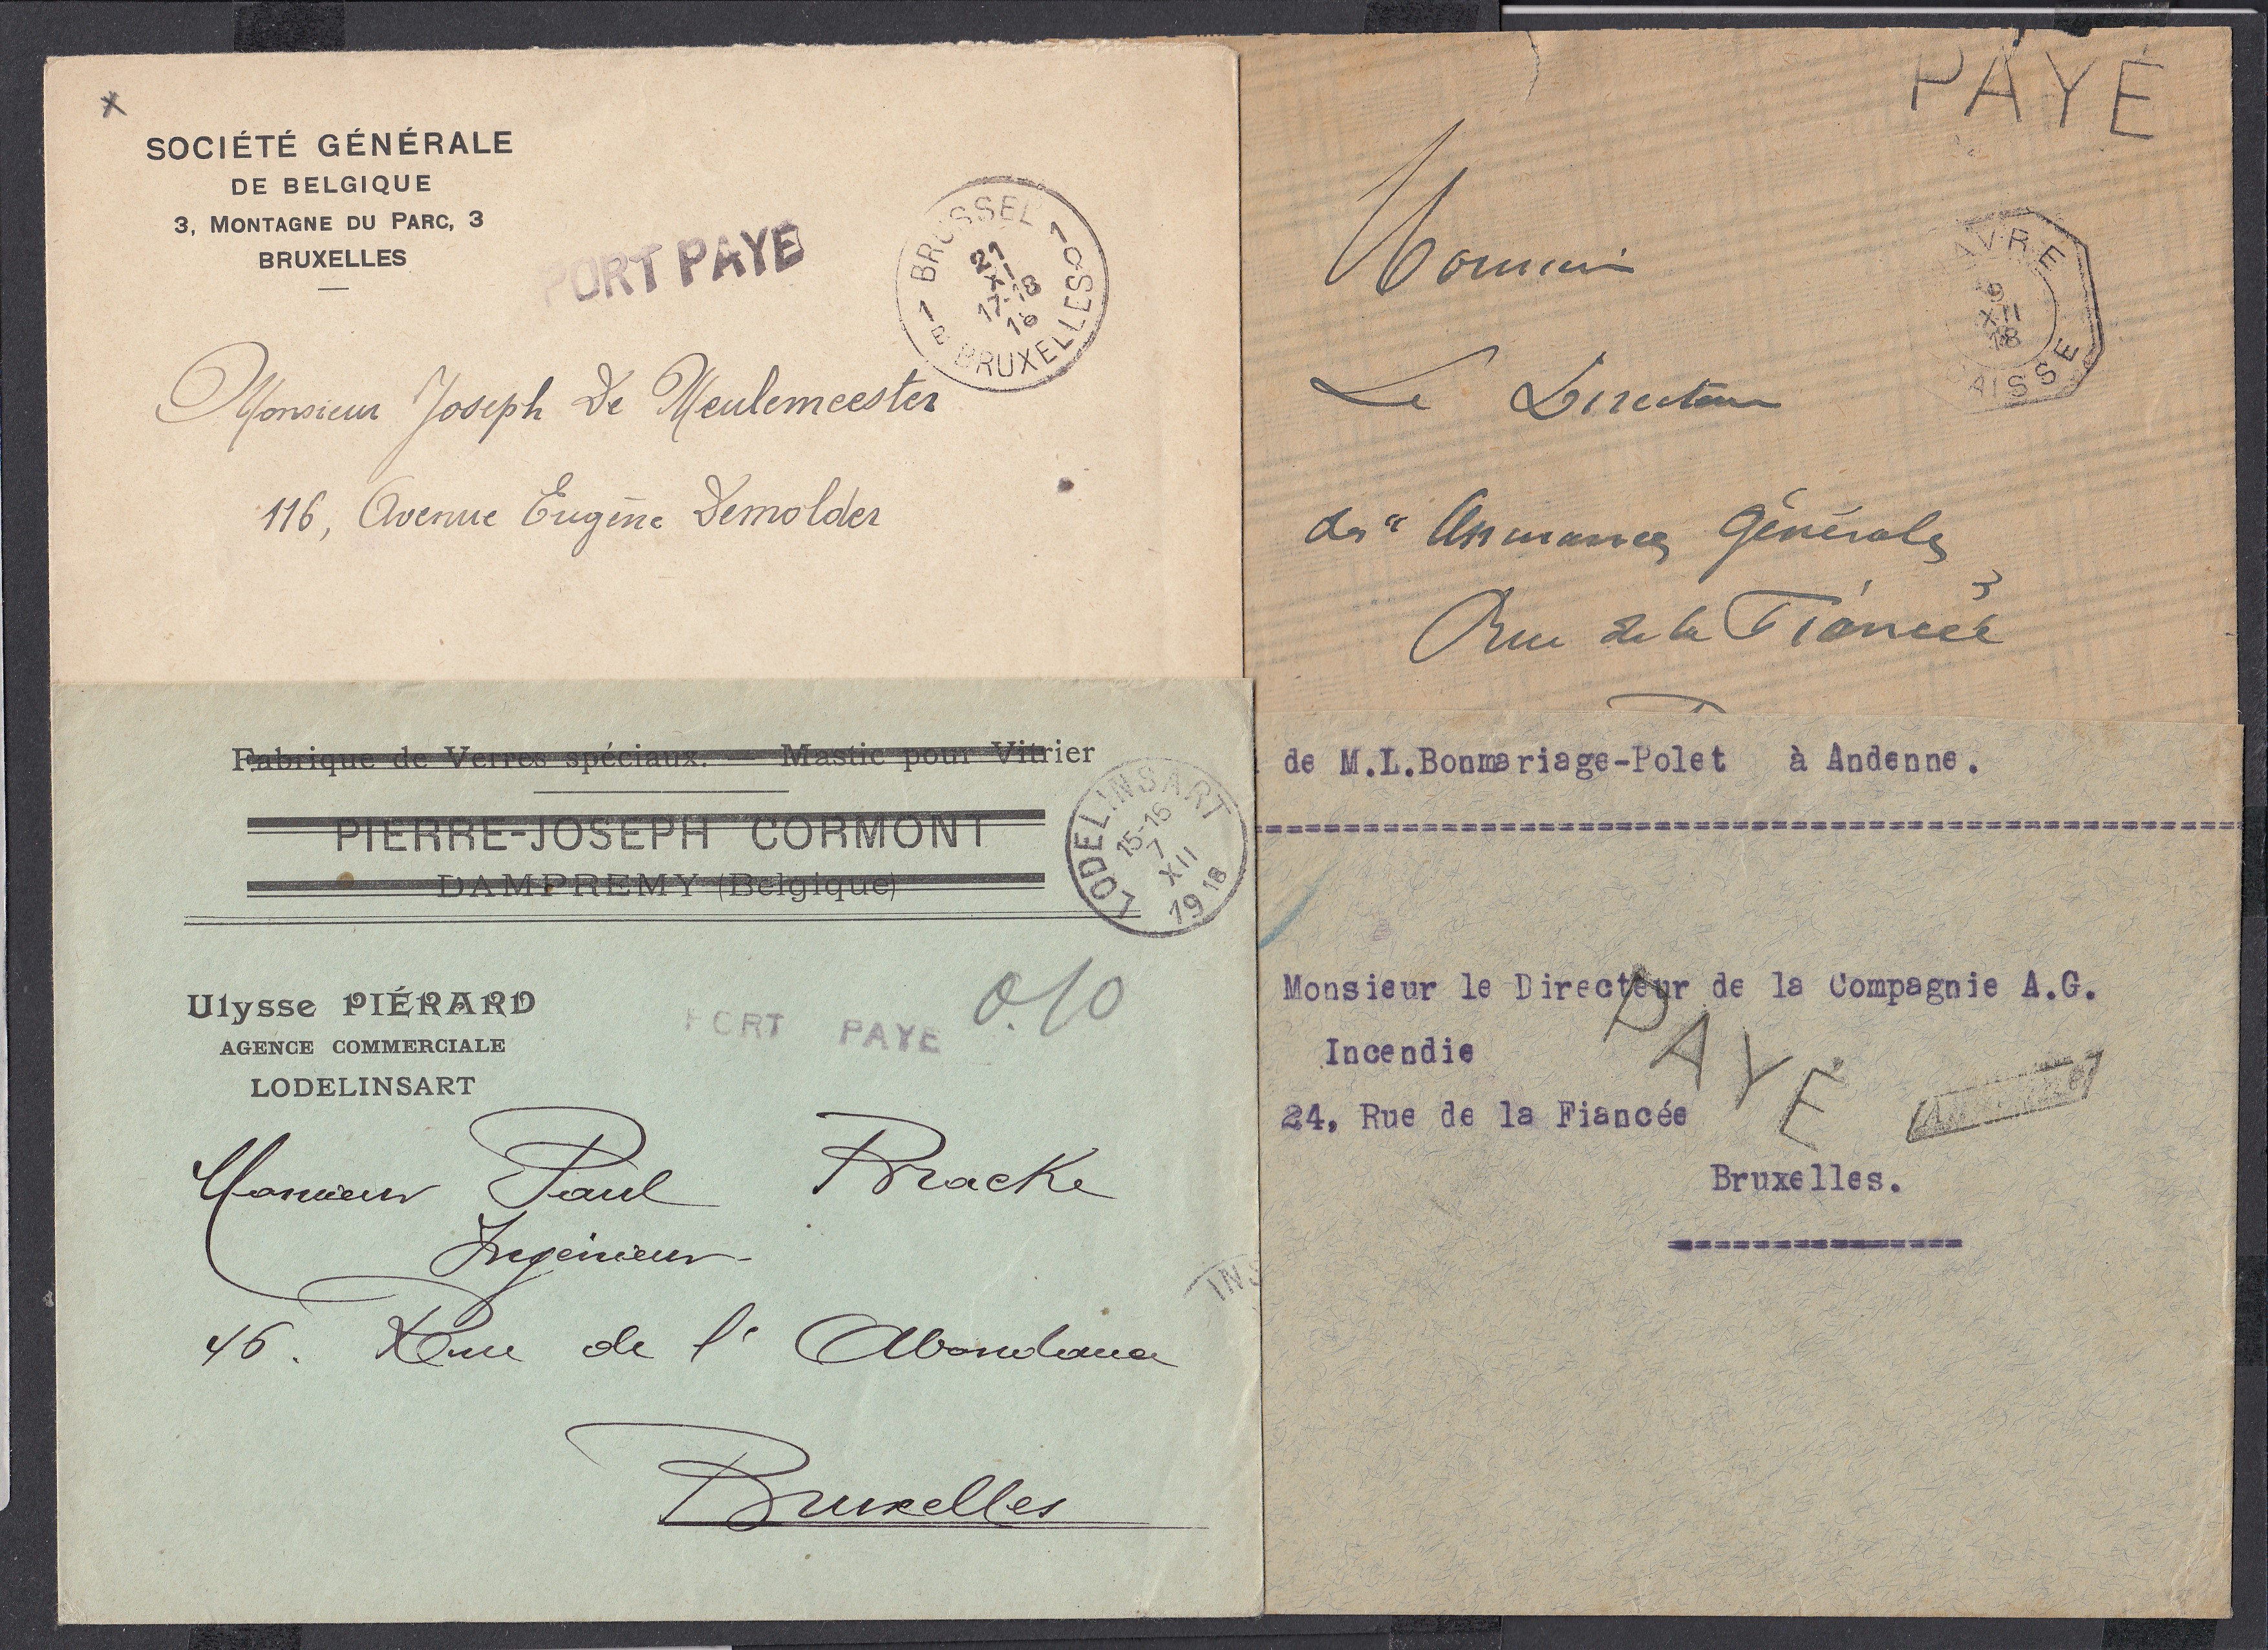 SOCIÉTÉ GÉNÉRALE
DE BELGIQUE
3, MONTAGNE DU PARC, 3
BRUXELLES
PORT PAYÉ
1 BRUSSEL 1
21
XI
17-18
18
B BRUXELLES
Monsieur Joseph De Meulemeester
116, Avenue Eugène Demolder
PAYÉ
AVRE
6
XII
18
AISSE
Monsieur
Le Directeur
des "Assurances Générales
Rue de la Fiancée
Fabrique de Verres spéciaux. — Mastic pour Vitrier
PIERRE-JOSEPH CORMONT
DAMPREMY (Belgique)
LODELINSART
15-16
7
XII
1918
Ulysse PIÉRARD
AGENCE COMMERCIALE
LODELINSART
PORT PAYE
0.10
Monsieur Paul Bracke
Ingénieur
46. Rue de l'Abondance
Bruxelles
INS
de M.L.Bonmariage-Polet à Andenne.
Monsieur le Directeur de la Compagnie A.G.
Incendie
24, Rue de la Fiancée
Bruxelles.
PAYÉ